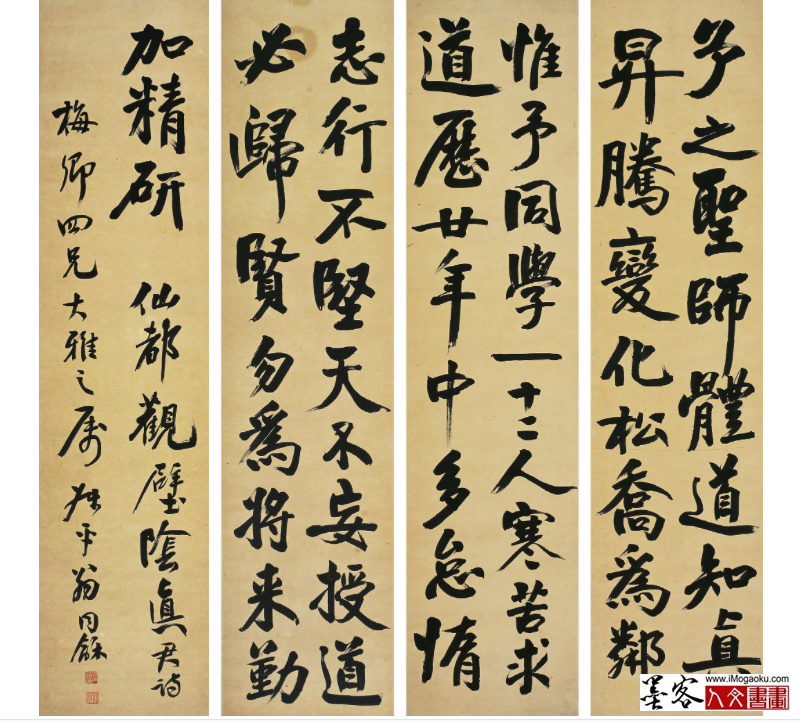 予之聖師體道知真
昇騰變化松喬為鄰
惟予同學一十二人寒苦求
道歷廿年中多怠惰
志行不堅天不妄授道
必歸賢勿為將来勤
加精研 仙都觀壁陰真君詩
梅卿四兄大雅之属 叔平翁同龢
www.iMogaoku.com
墨客人文書畫